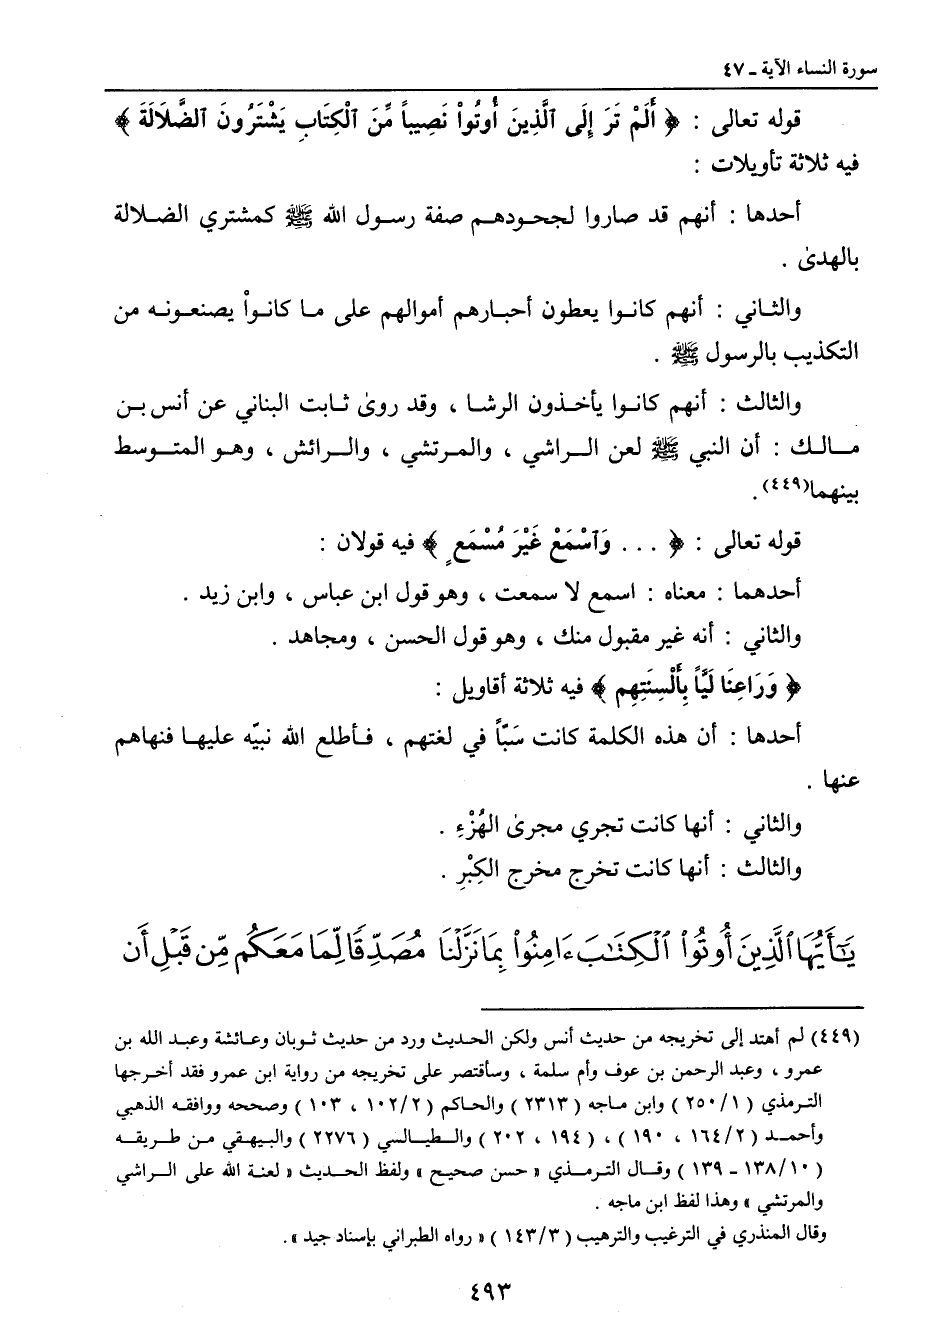 سورة النساء الآية ـ ٤٧
قوله تعالى : ﴿ أَلَمْ تَرَ إِلَى ٱلَّذِينَ أُوتُواْ نَصِيباً مِّنَ ٱلْكِتَابِ يَشْتَرُونَ ٱلضَّلَالَةَ ﴾
فيه ثلاثة تأويلات :
أحدها : أنهم قد صاروا لجحودهم صفة رسول الله ﷺ كمشتري الضلالة
بالهدىٰ .
والثاني : أنهم كانوا يعطون أحبارهم أموالهم على ما كانواْ يصنعونه من
التكذيب بالرسول ﷺ .
والثالث : أنهم كانوا يأخذون الرشا ، وقد روىٰ ثابت البناني عن أنس بن
مالك : أن النبي ﷺ لعن الراشي ، والمرتشي ، والرائش ، وهو المتوسط
بينهما(٤٤٩) .
قوله تعالى : ﴿ . . . وَٱسْمَعْ غَيْرَ مُسْمَعٍ ﴾ فيه قولان :
أحدهما : معناه : اسمع لا سمعت ، وهو قول ابن عباس ، وابن زيد .
والثاني : أنه غير مقبول منك ، وهو قول الحسن ، ومجاهد .
﴿ وَرَاعِنَا لَيَّاً بِأَلْسِنَتِهِم ﴾ فيه ثلاثة أقاويل :
أحدها : أن هذه الكلمة كانت سَبّاً في لغتهم ، فأطلع الله نبيّه عليها فنهاهم
عنها .
والثاني : أنها كانت تجري مجرىٰ الهُزْءِ .
والثالث : أنها كانت تخرج مخرج الكِبْرِ .
يَـٰٓأَيُّهَا ٱلَّذِينَ أُوتُواْ ٱلْكِتَـٰبَ ءَامِنُواْ بِمَا نَزَّلْنَا مُصَدِّقًا لِّمَا مَعَكُم مِّن قَبْلِ أَن
(٤٤٩) لم أهتد إلى تخريجه من حديث أنس ولكن الحديث ورد من حديث ثوبان وعائشة وعبد الله بن
عمرو ، وعبد الرحمن بن عوف وأم سلمة ، وسأقتصر على تخريجه من رواية ابن عمرو فقد أخرجها
الترمذي (٢٥٠/١) وابن ماجه (٢٣١٣) والحاكم (١٠٢/٢ ، ١٠٣) وصححه ووافقه الذهبي
وأحمد (١٦٤/٢ ، ١٩٠) ، (١٩٤ ، ٢٠٢) والطيالسي (٢٢٧٦) والبيهقي من طريقه
(١٣٨/١٠ ـ ١٣٩) وقال الترمذي « حسن صحيح » ولفظ الحديث « لعنة الله على الراشي
والمرتشي » وهذا لفظ ابن ماجه .
وقال المنذري في الترغيب والترهيب (١٤٣/٣) « رواه الطبراني بإسناد جيد » .
٤٩٣